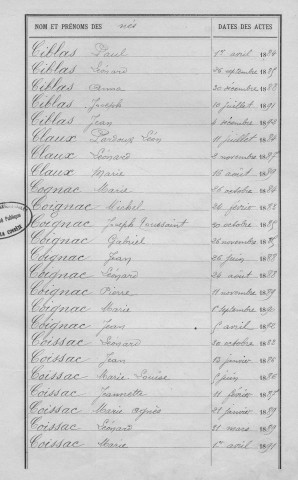 NOM ET PRÉNOMS DES nés DATES DES ACTES
Ciblas Paul 1er avril 1884
Ciblas Léonard 26 septembre 1885
Ciblas Anna 20 décembre 1888
Ciblas Joseph 10 juillet 1891
Ciblas Jean 4 décembre 1892
Claux Pardoux Léon 11 juillet 1884
Claux Léonard 3 novembre 1885
Claux Marie 16 août 1889
Cognac Marie 26 octobre 1884
Coignac Michel 26 février 1885
Coignac Joseph Toussaint 30 octobre 1885
Coignac Gabriel 26 novembre 1885
Coignac Jean 26 juin 1888
Coignac Léonard 26 août 1888
Coignac Pierre 11 novembre 1889
Coignac Marie septembre
Coignac Jean avril
Coissac Léonard 30 octobre 1883
Coissac Jean 13 janvier 1886
Coissac Marie Louise juin
Coissac Jeannette 11 février 1888
Coissac Marie Agnès 21 janvier 1889
Coissac Léonard 21 mars 1889
Coissac Marie 1er avril 1891